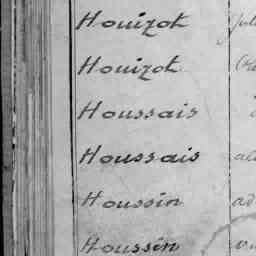 Houizot
Houizot
Houssais
Houssais
Houssin ad
Houssin